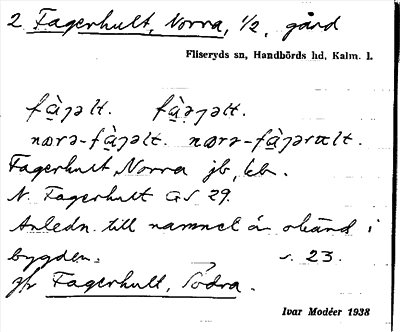 2 Fagerhult, Norra, 1/2, gård
Fliseryds sn, Handbörds hd, Kalm. l.
fàɡəlt. fàəɡəlt.
nærə-fàɡəlt. nærə-fàɡərɑlt.
Fagerhult Norra jb, kb.
N. Fagerhult GS 29.
Anledn. till namnet är okänd i
bygden. s. 23.
jfr Fagerhult, Södra.
Ivar Modéer 1938